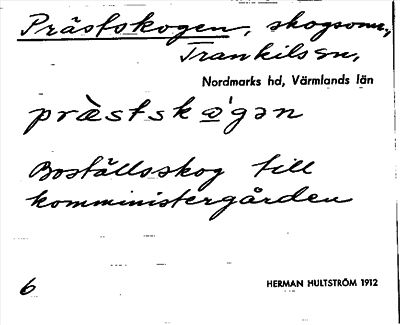 Prästskogen, skogsomr.,
Trankils sn,
Nordmarks hd, Värmlands län
prὰstskὼ'gən
Boställsskog till
komministergården
6
HERMAN HULTSTRÖM 1912